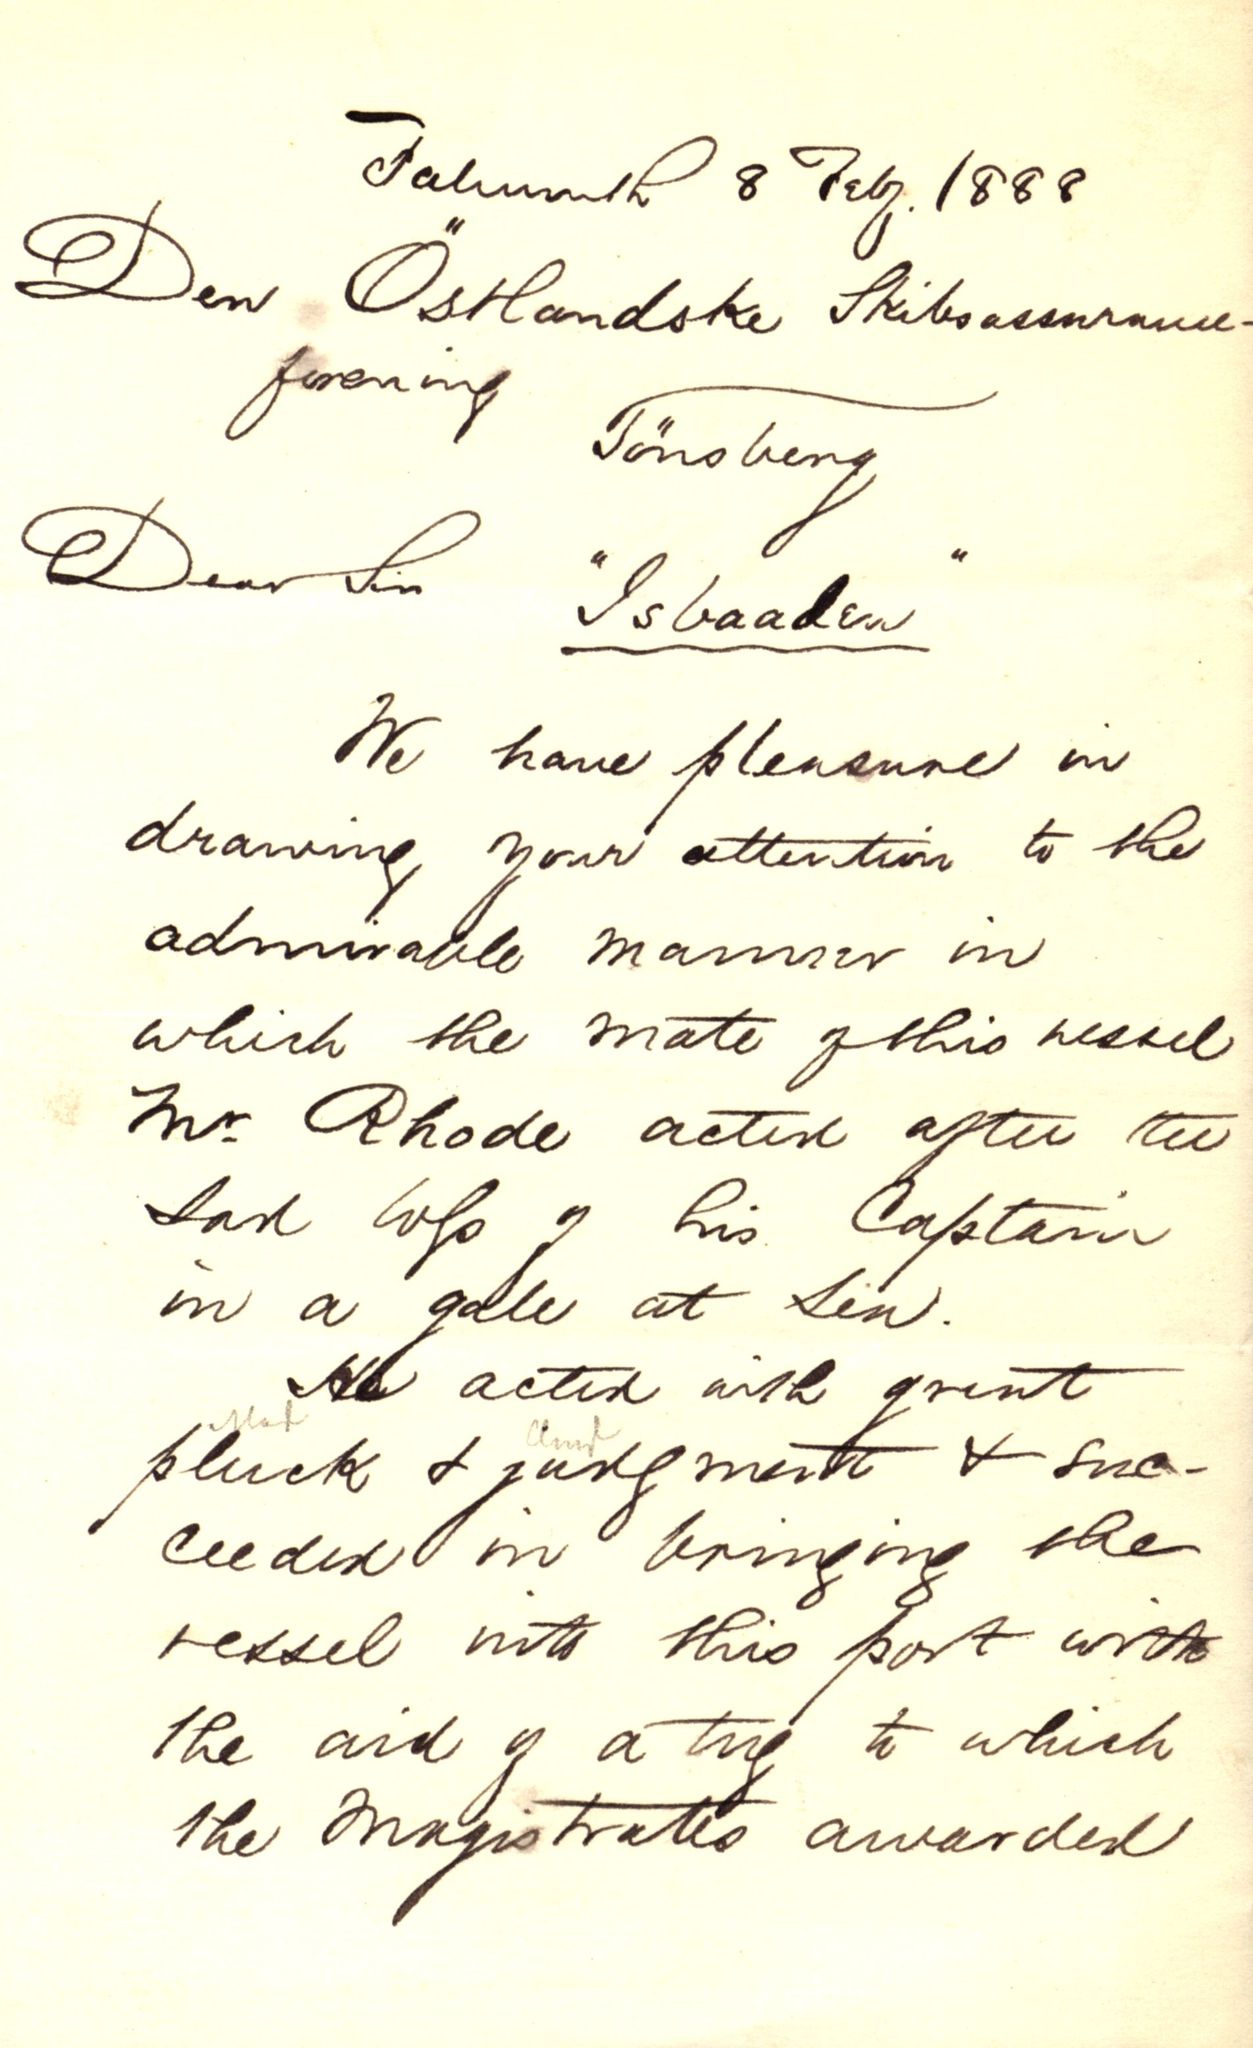 Falmouth 8 Feby. 1888
Den Östlandske Skibsassurance-
forening
Tönsberg
Dear Sir "Isbaaden"
We have pleasure in
drawing your attention to the
admirable manner in
which the mate of this vessel
Mr. Rhode acted after the
sad loss of his Captain
in a gale at sea.
He acted with great
pluck & judgment & suc-
ceeded in bringing the
vessel into this port with
the aid of a tug to which
the Magistrates awarded